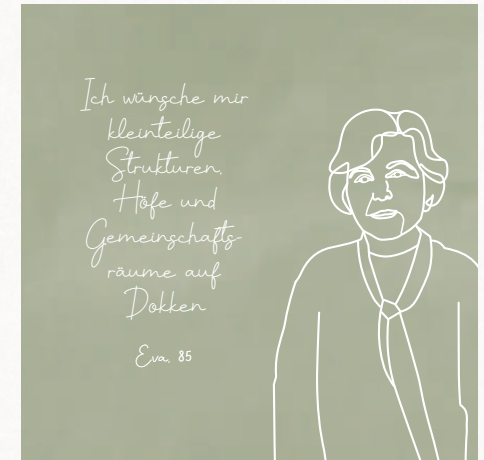 Ich wünsche mir
kleinteilige
Strukturen,
Höfe und
Gemeinschafts-
räume auf
Dokken
Eva, 85